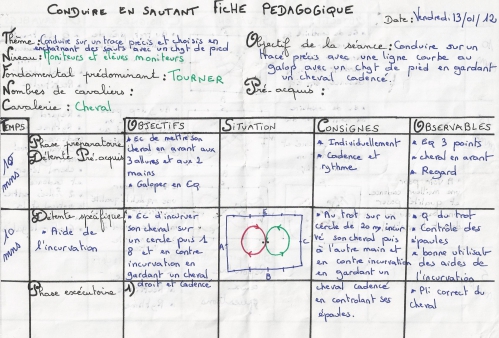 CONDUIRE EN SAUTANT FICHE PEDAGOGIQUE
Date : Vendredi 13/01/12
Thème : Conduire sur un tracé précis et choisis en
enchaînant des sauts avec un chgt de pied
Niveau : Moniteurs et élèves moniteurs
Fondamental prédominant : TOURNER
Nombres de cavaliers :
Cavalerie : Cheval
Objectif de la séance : Conduire sur un
tracé précis avec une ligne courbe au
galop avec un chgt de pied en gardant
un cheval cadencé.
Pré-acquis :
TEMPS
OBJECTIFS
SITUATION
CONSIGNES
OBSERVABLES
10
mns
Phase préparatoire
Détente Pré-acquis
• EC de mettre son
cheval en avant aux
3 allures et aux 2
mains
• Galoper en EQ
• Individuellement
• Cadence et
rythme
• EQ 3 points
• cheval en avant
• Regard
10
mns
Détente spécifique
• Aide de
l'incurvation
• EC d'incurver
son cheval sur
un cercle puis 1
8 et en contre
incurvation en
gardant un cheval
droit et cadencé
E
A
C
B
• Au trot sur un
cercle de 20 m, incur
vé son cheval puis
à l'autre main et
en contre incurvation
en gardant un
cheval cadencé
en controlant ses
épaules.
• Q du trot
• Contrôle des
épaules
• bonne utilisat°
des aides de
l'incurvation
• Pli correct du
cheval
Phase exécutoire
1)